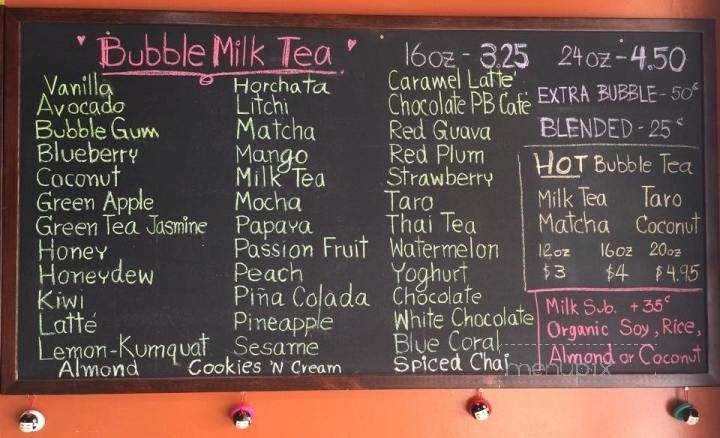 Bubble Milk Tea
16oz - 3.25 24oz - 4.50
Vanilla
Avocado
Bubble Gum
Blueberry
Coconut
Green Apple
Green Tea Jasmine
Honey
Honeydew
Kiwi
Latté
Lemon-Kumquat
Almond
Horchata
Litchi
Matcha
Mango
Milk Tea
Mocha
Papaya
Passion Fruit
Peach
Piña Colada
Pineapple
Sesame
Cookies 'N Cream
Caramel Latte'
Chocolate PB Café
Red Guava
Red Plum
Strawberry
Taro
Thai Tea
Watermelon
Yoghurt
Chocolate
White Chocolate
Blue Coral
Spiced Chai
EXTRA BUBBLE - 50¢
BLENDED - 25¢
HOT Bubble Tea
Milk Tea Taro
Matcha Coconut
12oz 16oz 20oz
$3 $4 $4.95
Milk Sub. +35¢
Organic Soy, Rice,
Almond or Coconut
menupix